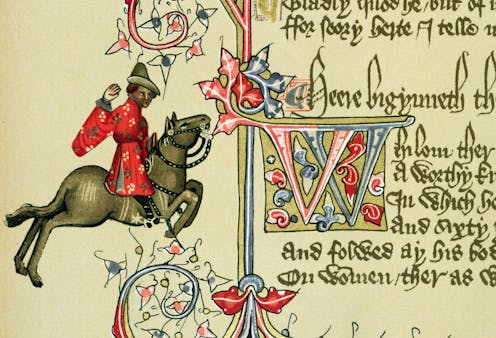 Gladly quod he / but of
ffor soory herte / I telle
Heere bigynneth th
Whilom ther
A worthy
In which he
And sixty
And folwed ay his bod
On wommen / ther as w